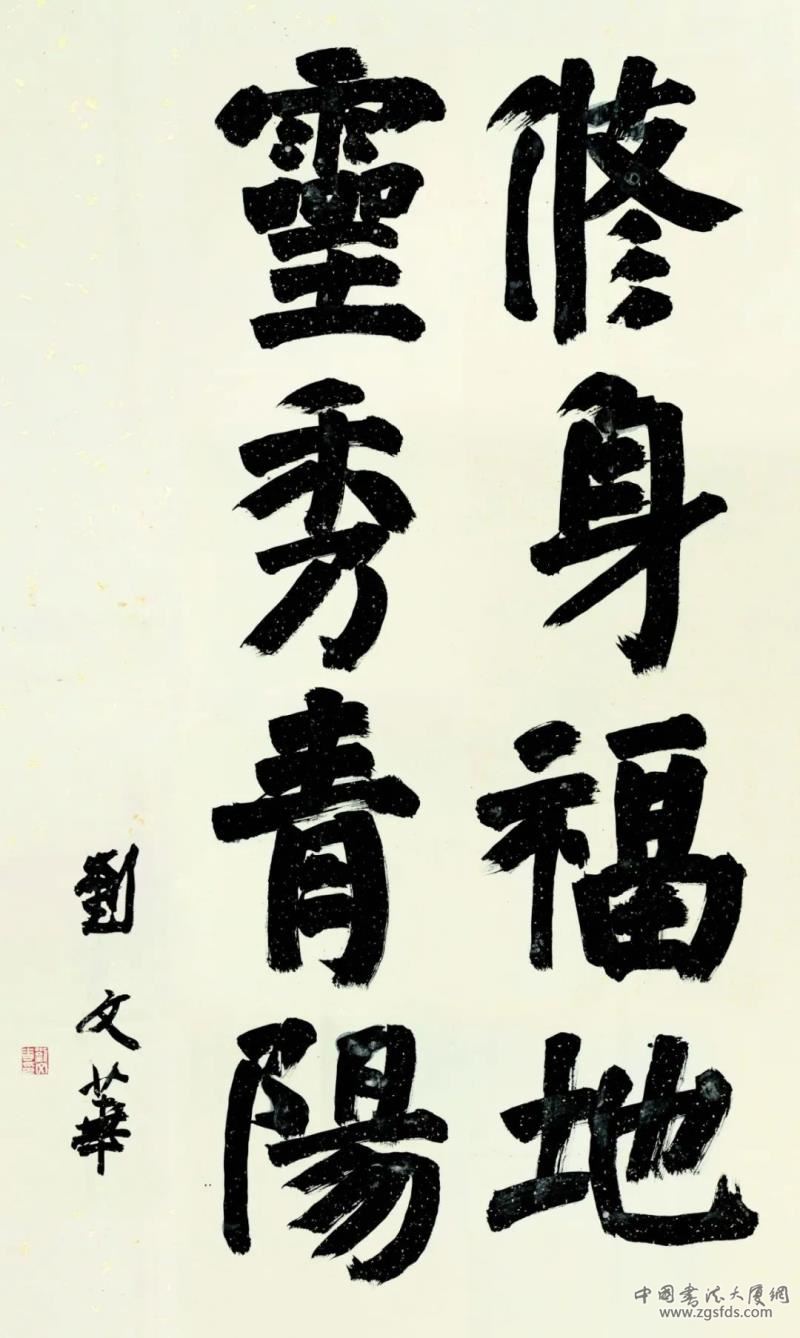 修身福地
靈秀青陽
劉文華
中国书法大厦網
www.zgsfds.com